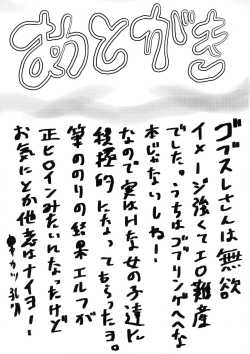 あとがき
ゴブスレさんは無欲
イメージ強くてエロ難産
でした。うちはゴブリンゲヘヘな
本じゃないしねー!
なので実はHな女の子達に
積極的になってもらったヨ。
筆ののりの結果エルフが
正ヒロインみたいんなったけど
お気にとか他意はナイヨー!